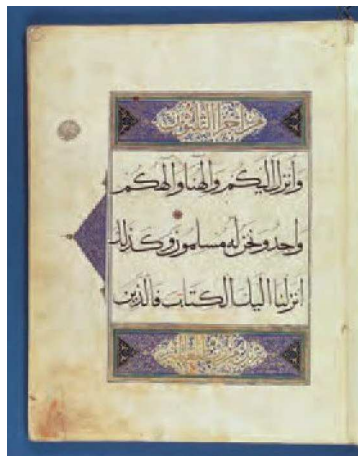 وانزل اليكم والهنا والهكم
واحد ونحن له مسلمون وكذلك
انزلنا اليك الكتاب فالذين